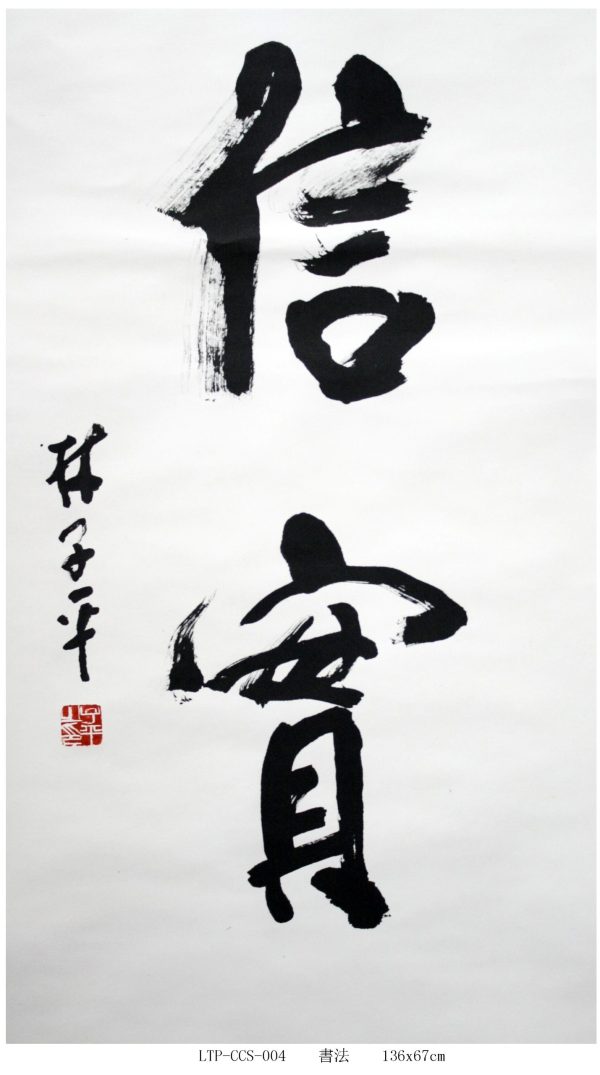 信實
林子平
子平之印
LTP-CCS-004 書法 136x67cm